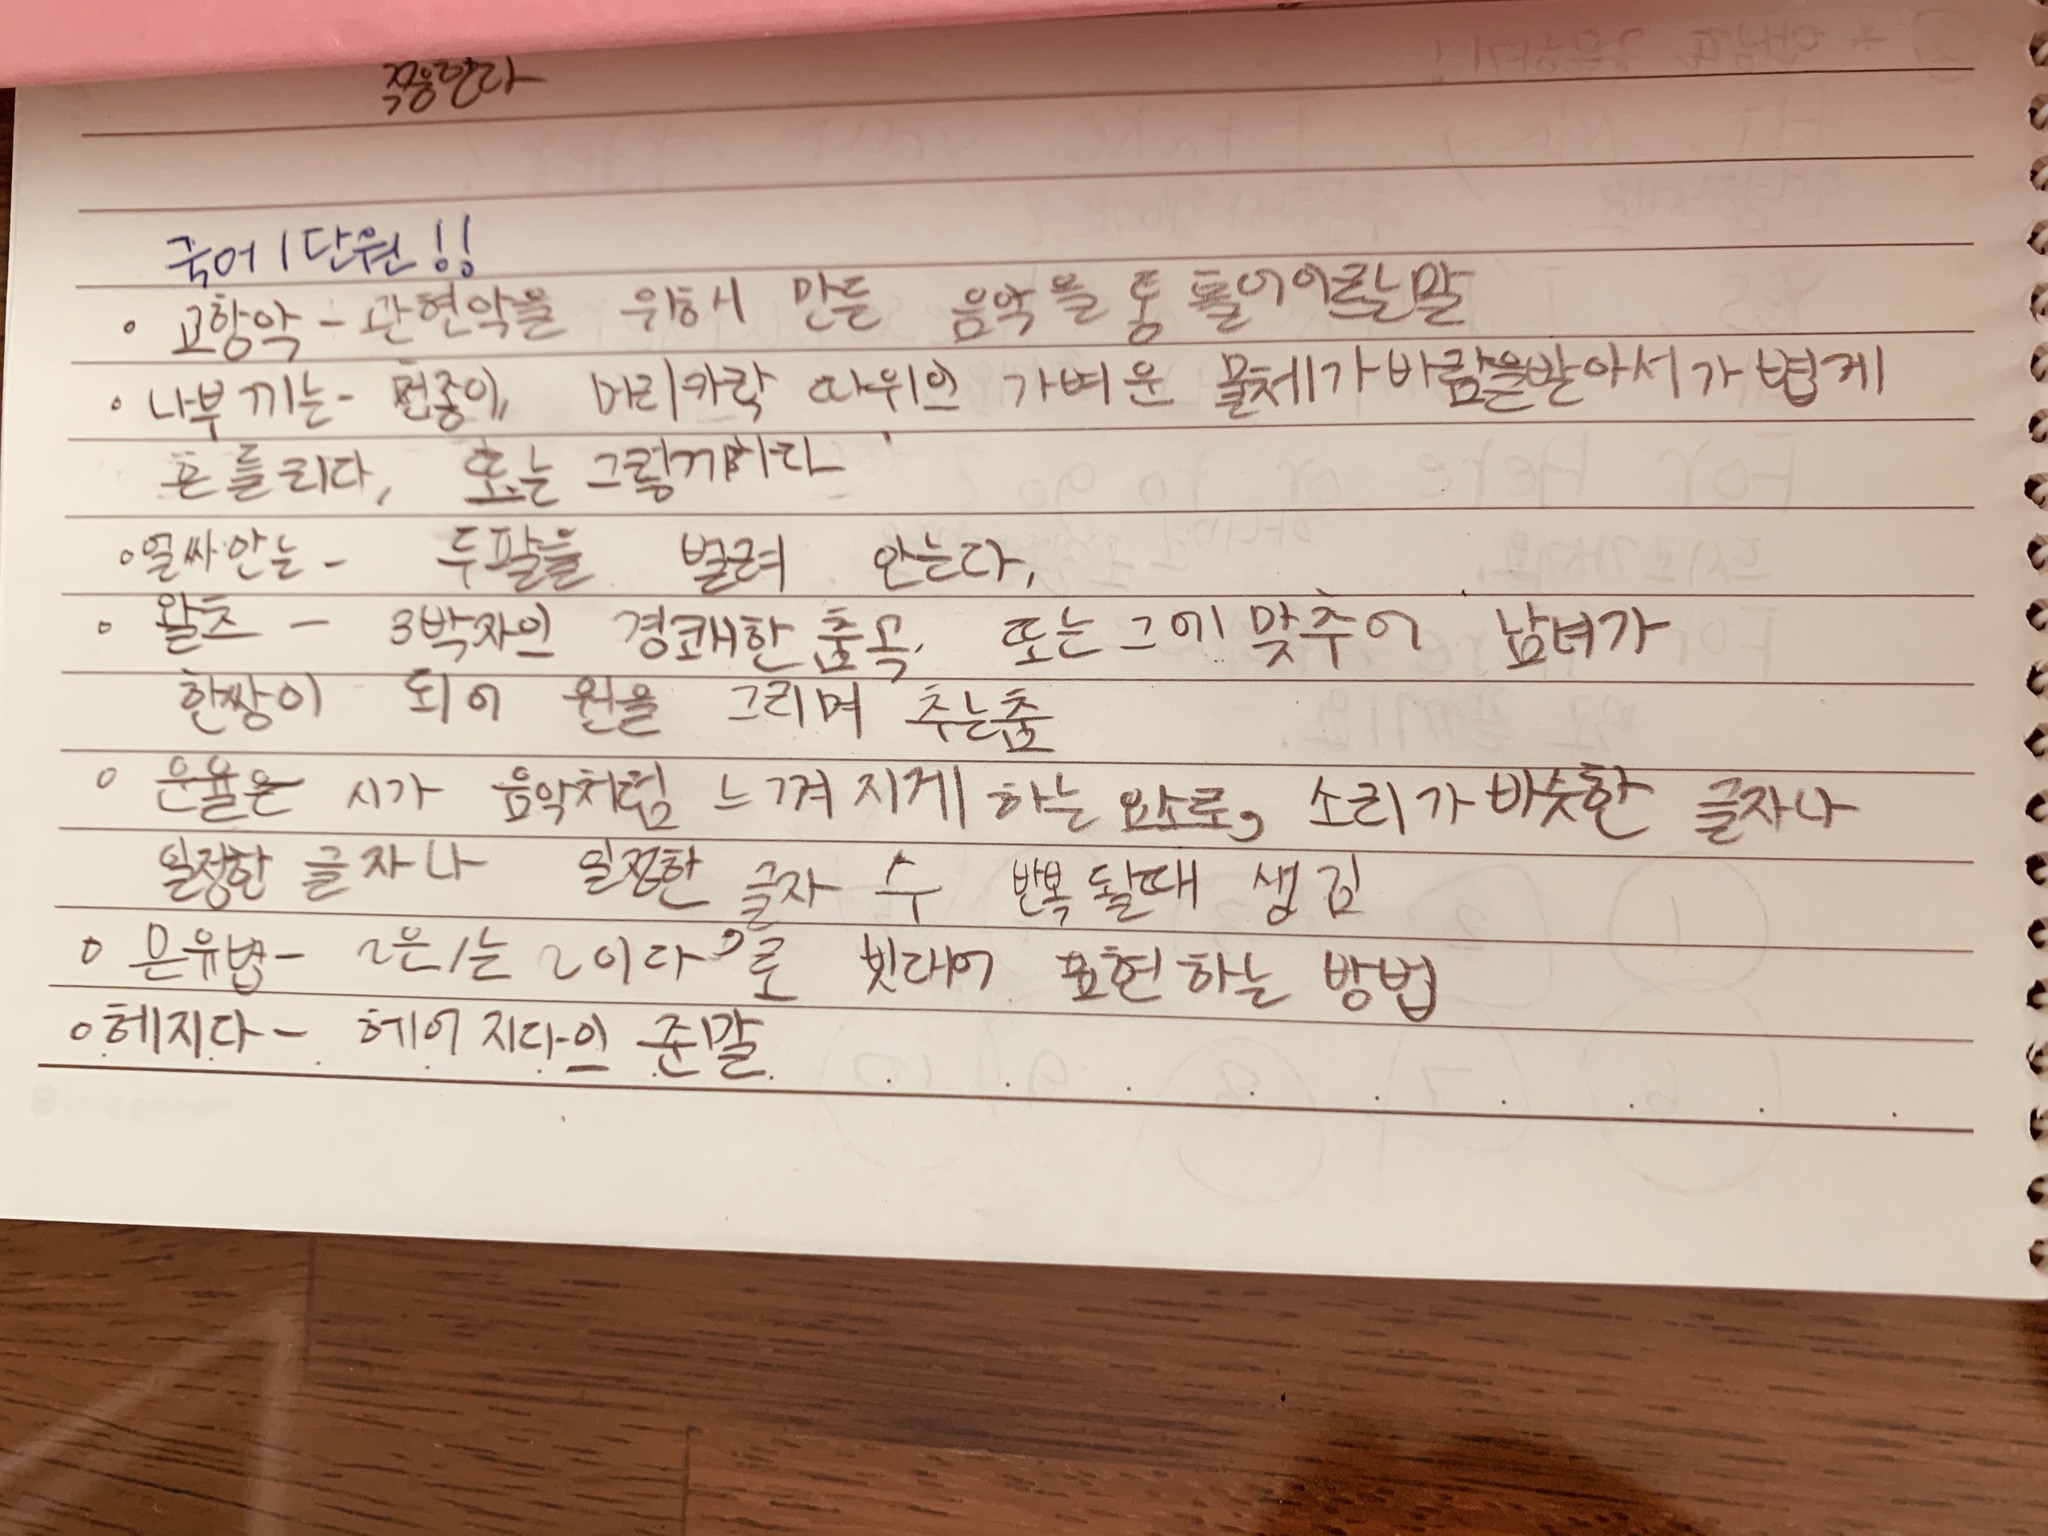 적응한다
국어 1단원!!
• 교향악 - 관현악을 위해서 만든 음악을 통틀어 이르는 말
• 나부끼는 - 천, 종이, 머리카락 따위의 가벼운 물체가 바람을 받아서 가볍게
흔들리다, 또는 그렇게하다
• 얼싸안는 - 두팔을 벌려 안는다.
• 왈츠 - 3박자의 경쾌한 춤곡, 또는 그에 맞추어 남녀가
한짱이 되어 원을 그리며 추는 춤
• 운율은 시가 음악처럼 느껴지게 하는 요소로, 소리가 비슷한 글자나
일정한 글자나 일정한 글자 수 반복될때 생김
• 은유법 - ~은/는 ~이다'로 빗대어 표현하는 방법
• 헤지다 - 헤어지다의 준말